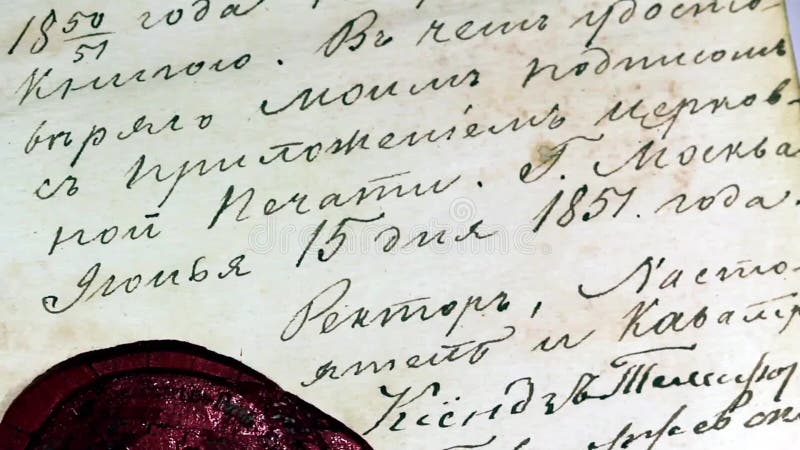 18 50/51 года.
Книгою. Въ чемъ удосто-
вѣряю моимъ подписомъ
съ приложеніемъ церков-
ной Печати. Г. Москва
Іюнья 15 дня 1851. года.
Ректоръ, Насто-
ятель и Кавалер
Ксендзъ
dreamstime